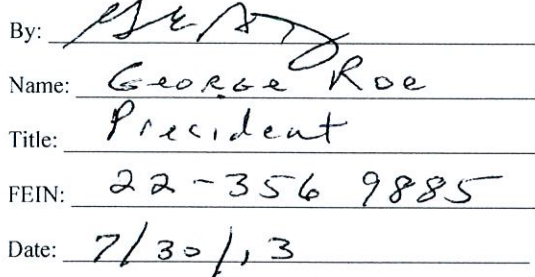 By:
Name: George Roe
Title: President
FEIN: 22-356 9885
Date: 7/30/13